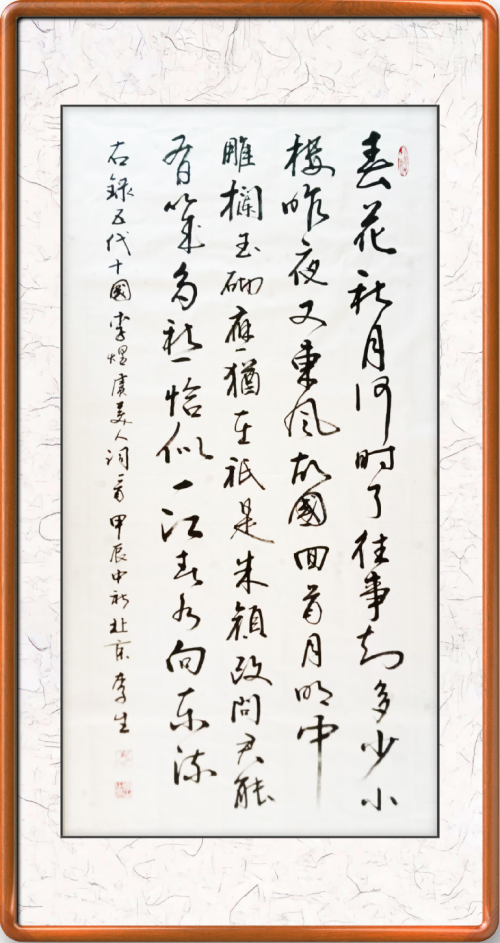 春花秋月何时了往事知多少小
楼昨夜又東风故國回首月明中
雕欄玉砌應猶在祇是朱顔改問君能
有幾多愁恰似一江春水向东流
右録五代十國李煜虞美人詞一首甲辰中秋北京李生